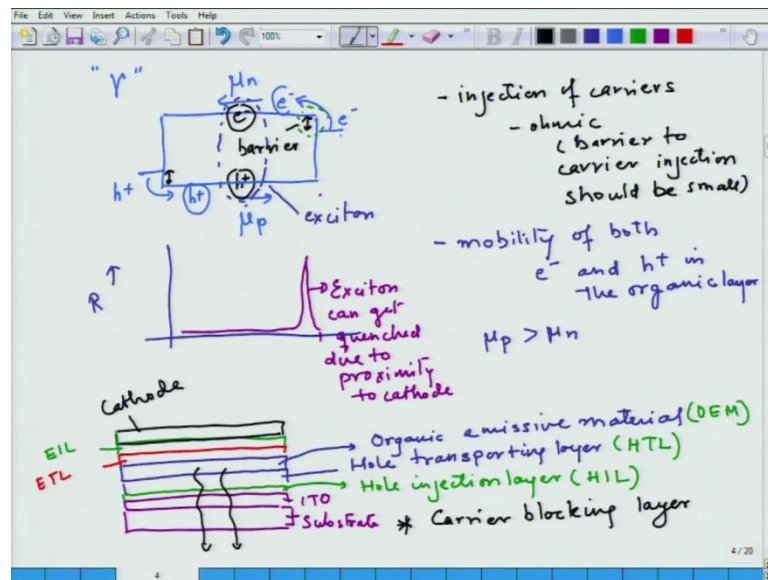 File Edit View Insert Actions Tools Help
100%
B I
"γ"
μn
e-
e-
e-
barrier
h+
h+
h+
μp
exciton
- injection of carriers
- ohmic
( barrier to
carrier injection
should be small)
- mobility of both
e- and h+ in
the organic layer
μp > μn
R ↑
Exciton
can get
quenched
due to
proximity
to cathode
Cathode
EIL
ETL
Organic emissive material (OEM)
Hole transporting layer (HTL)
Hole injection layer (HIL)
ITO
Substrate
* Carrier blocking layer
4 / 20
4